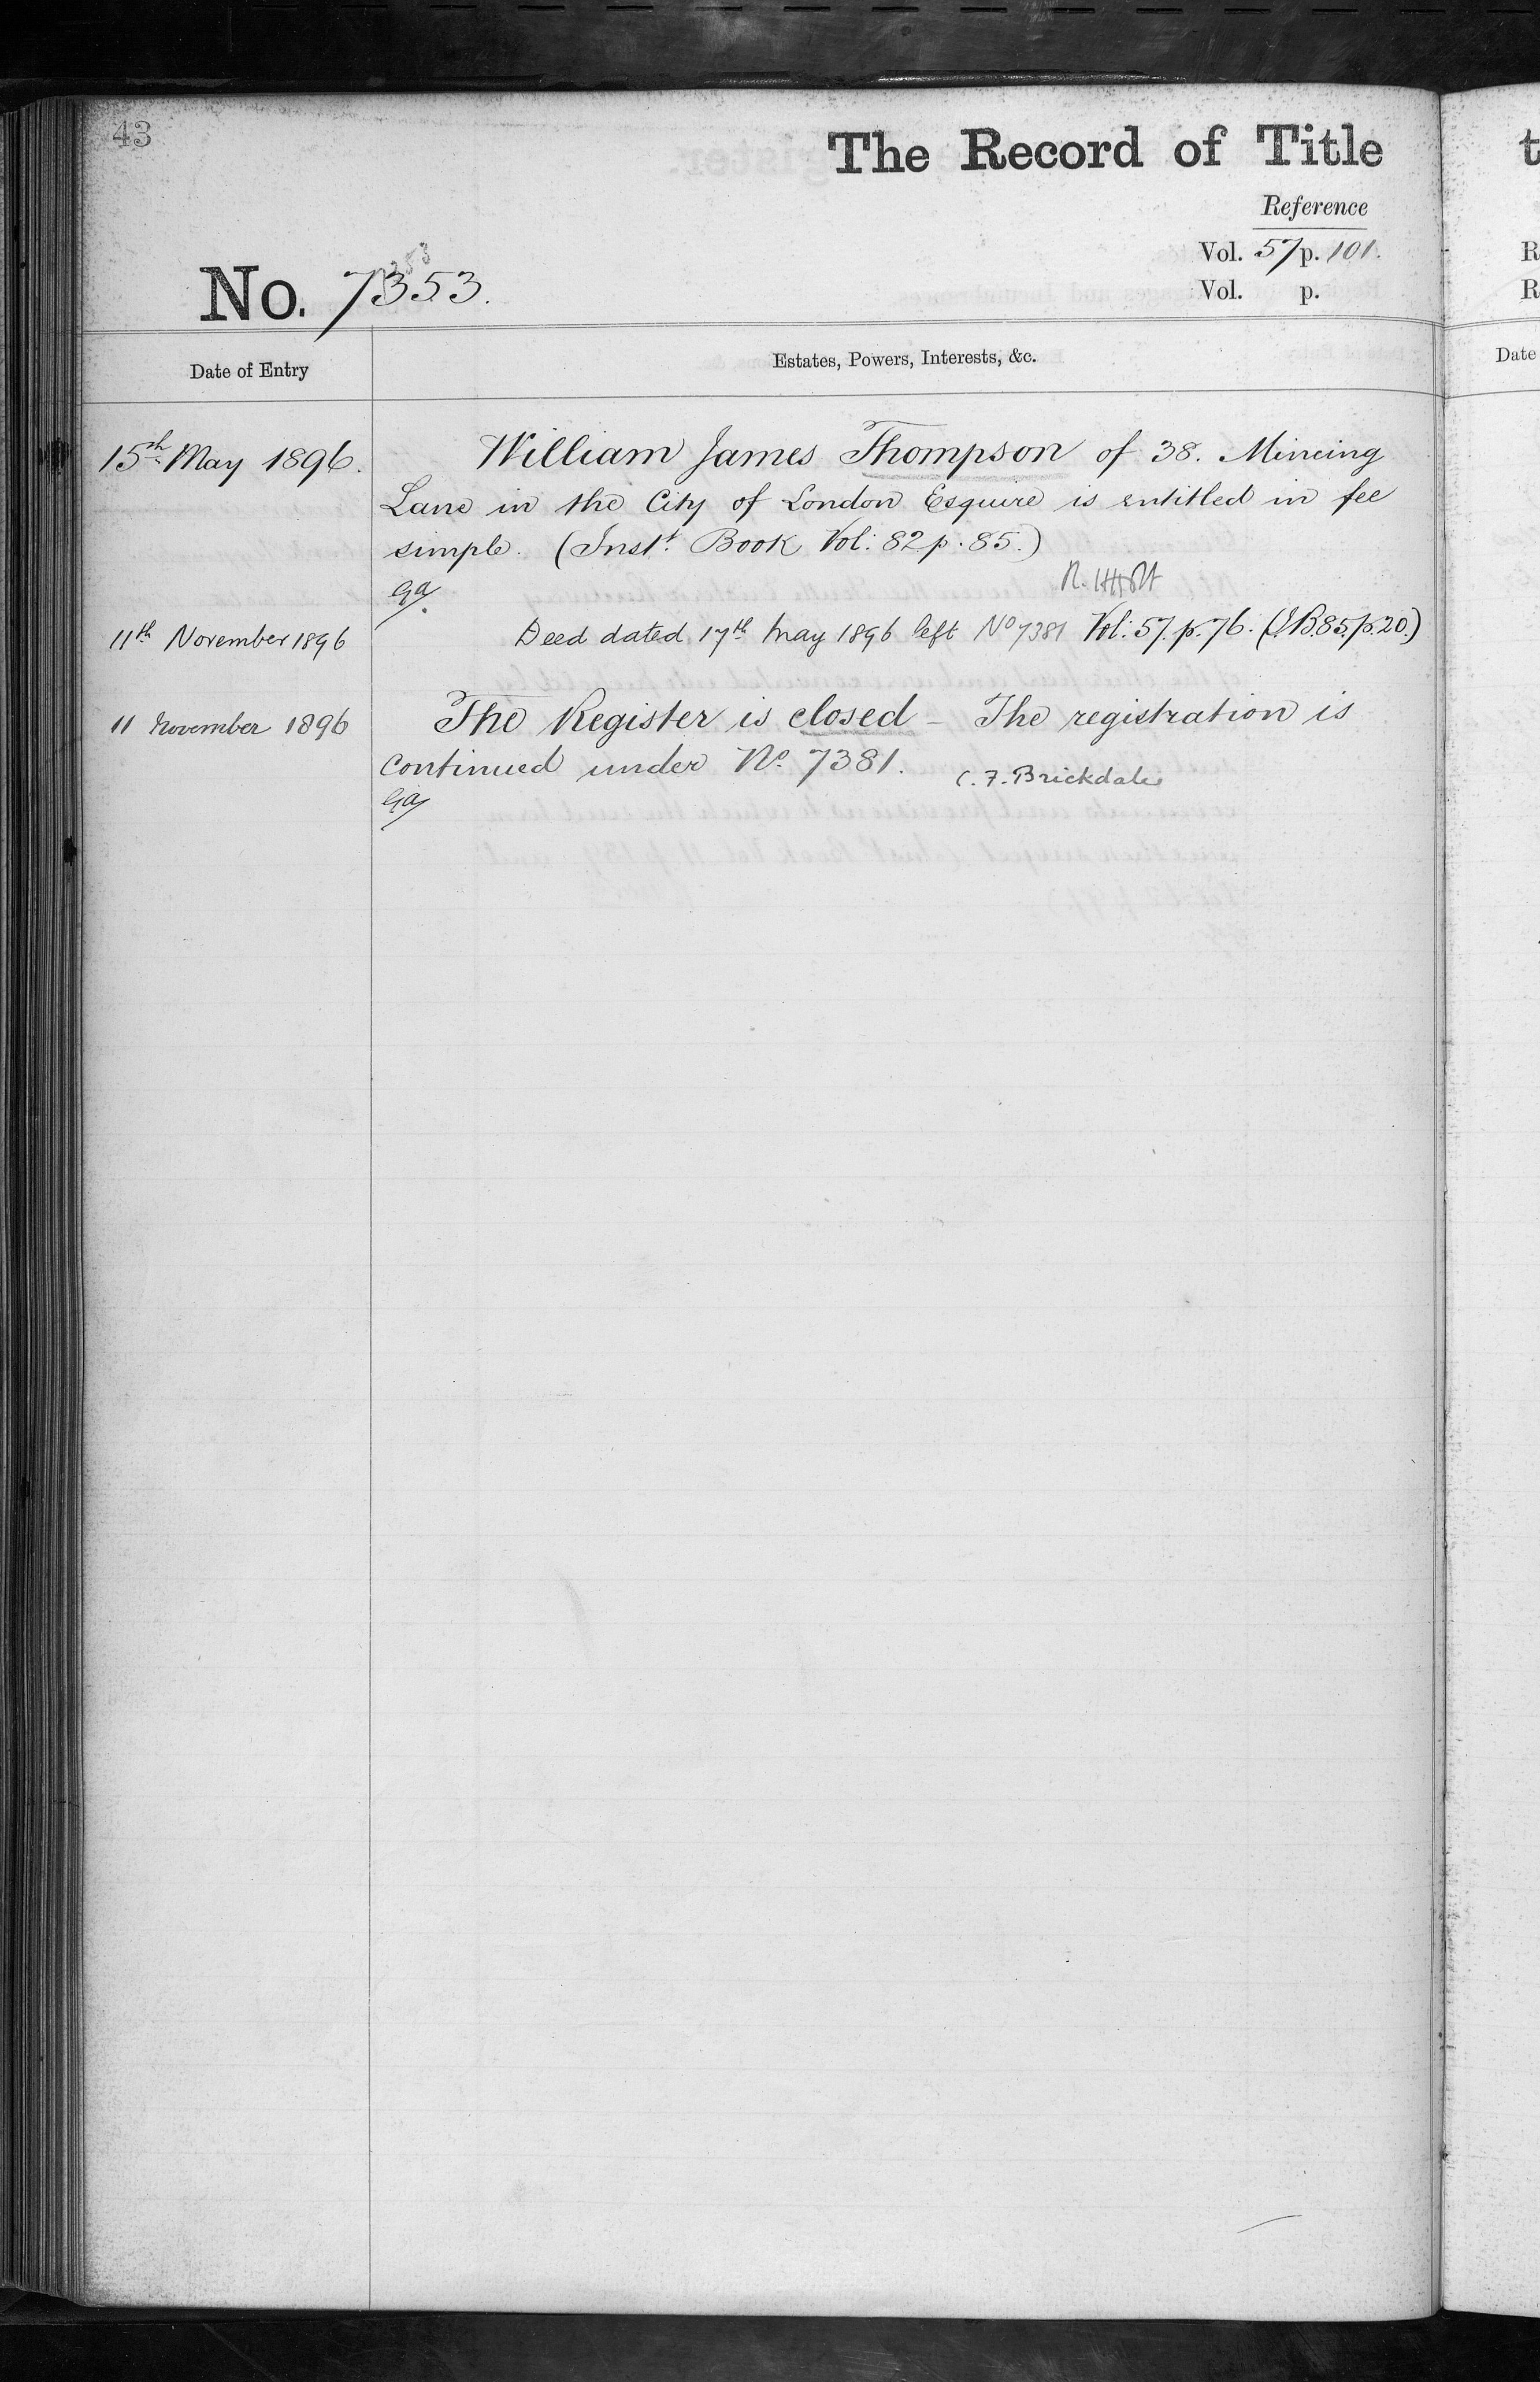 43
The Record of Title
Reference
Vol. 57 p. 101.
Vol. p.
No. 7353.
Date of Entry
Estates, Powers, Interests, &c.
15th May 1896.
William James Thompson of 38. Mincing
Lane in the City of London Esquire is entitled in fee
simple. (Inst. Book Vol: 82 p. 85.)
11th November 1896
Deed dated 17th May 1896 left No 7381 Vol: 57. p. 76. (I.B. 85. p. 20.)
11 November 1896
The Register is closed – The registration is
continued under No. 7381.
C. F. Brickdale
t
R
R
Date